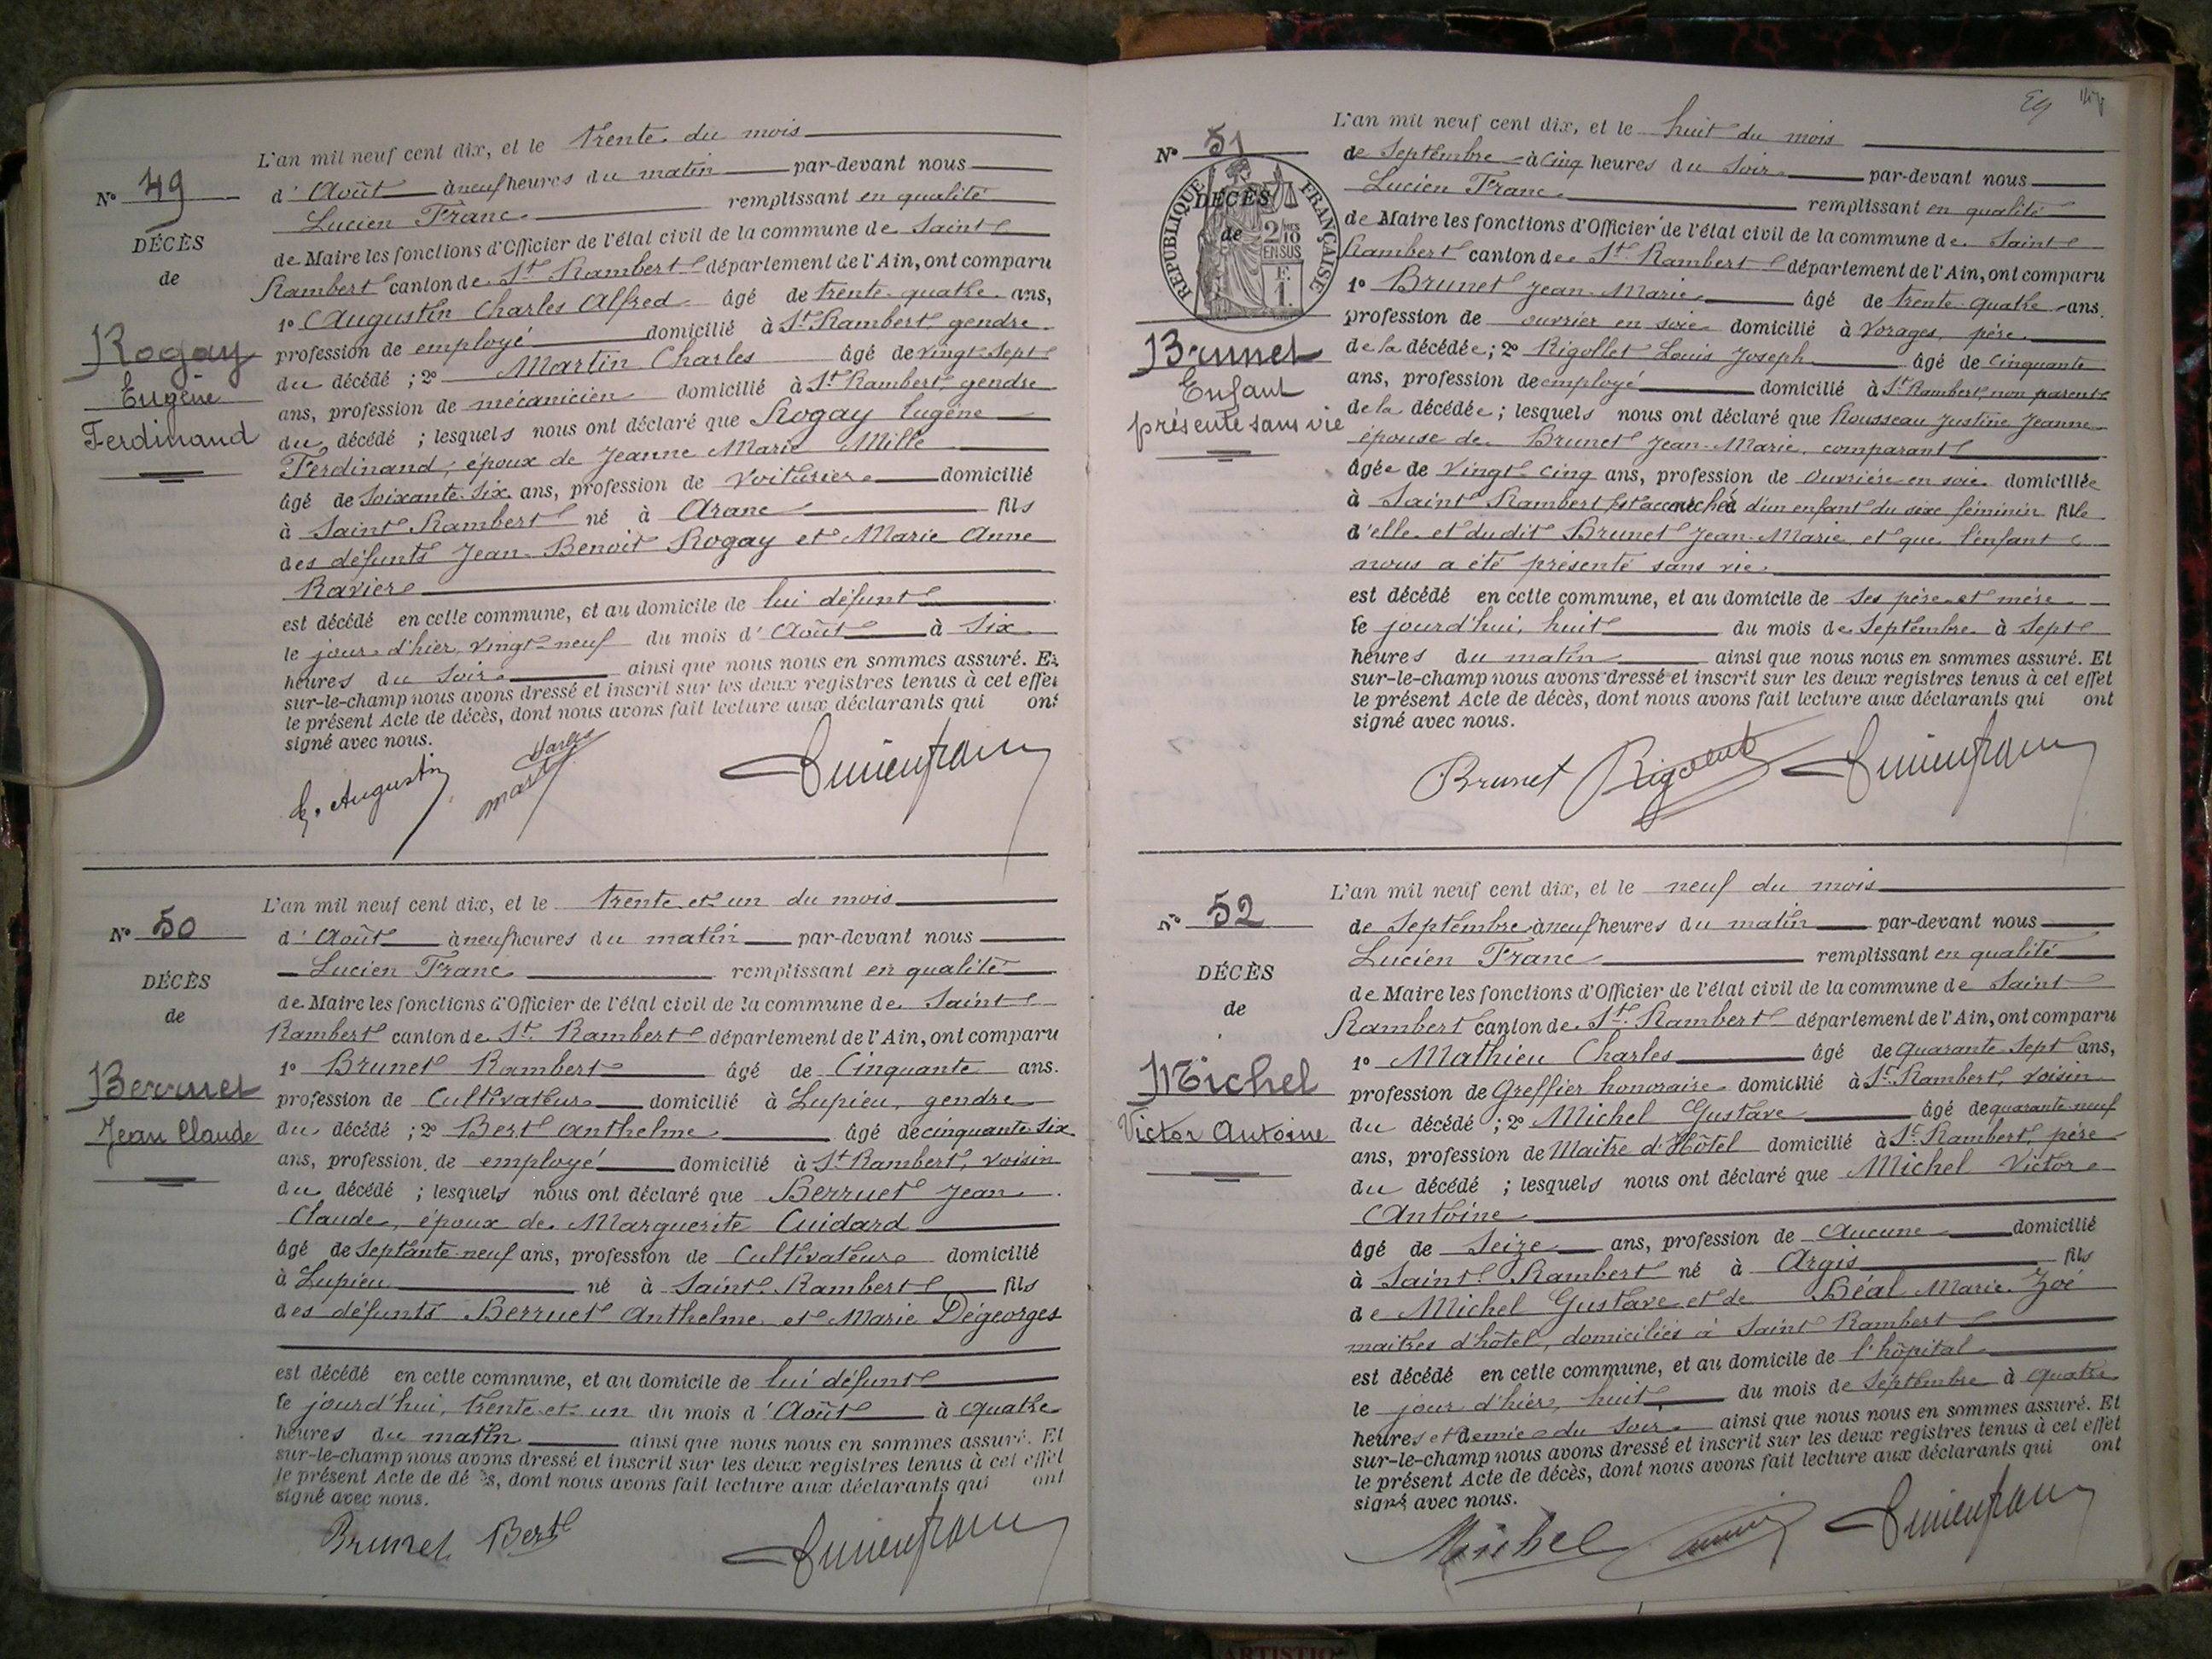 L'an mil neuf cent dix, et le trente du mois
Nº 49
d'Août à neuf heures du matin par-devant nous
Lucien Franc remplissant en qualité
DÉCÈS
de Maire les fonctions d'Officier de l'état civil de la commune de Saint
de
Rambert canton de St Rambert département de l'Ain, ont comparu
1º Augustin Charles Alfred âgé de trente-quatre ans,
profession de employé domicilié à St Rambert, gendre
Rogay
du décédé ; 2º Martin Charles âgé de vingt-sept
Eugène
ans, profession de mécanicien domicilié à St Rambert gendre
Ferdinand
du décédé ; lesquels nous ont déclaré que Rogay Eugène
Ferdinand, époux de Jeanne Marie Mille
âgé de soixante-six ans, profession de Voiturier domicilié
à Saint Rambert né à Aranc fils
des défunts Jean-Benoit Rogay et Marie Anne
Ravier
est décédé en cette commune, et au domicile de lui défunt
le jour d'hier, vingt-neuf du mois d'Août à Six
heures du Soir ainsi que nous nous en sommes assuré. Et
sur-le-champ nous avons dressé et inscrit sur les deux registres tenus à cet effet
le présent Acte de décès, dont nous avons fait lecture aux déclarants qui ont
signé avec nous.
Augustin Martin Charles Lucien Franc
L'an mil neuf cent dix, et le trente et un du mois
Nº 50
d'Août à neuf heures du matin par-devant nous
Lucien Franc remplissant en qualité
DÉCÈS
de Maire les fonctions d'Officier de l'état civil de la commune de Saint
de
Rambert canton de St. Rambert département de l'Ain, ont comparu
1º Brunet Rambert âgé de Cinquante ans.
Berruet
profession de Cultivateur domicilié à Lupieu, gendre
Jean Claude
du décédé ; 2º Bert Anthelme âgé de cinquante-six
ans, profession de employé domicilié à St Rambert, voisin
du décédé ; lesquels nous ont déclaré que Berruet Jean
Claude, époux de Marguerite Cuidard
âgé de Septante-neuf ans, profession de Cultivateur domicilié
à Lupieu né à Saint-Rambert fils
des défunts Berruet Anthelme et Marie Dégeorges
est décédé en cette commune, et au domicile de lui défunt
le jourd'hui, trente et un du mois d'Août à quatre
heures du matin ainsi que nous nous en sommes assuré. Et
sur-le-champ nous avons dressé et inscrit sur les deux registres tenus à cet effet
le présent Acte de décès, dont nous avons fait lecture aux déclarants qui ont
signé avec nous.
Brunet Bert Lucien Franc
L'an mil neuf cent dix, et le huit du mois
Nº 51
de Septembre à Cinq heures du Soir par-devant nous
Lucien Franc remplissant en qualité
RÉPUBLIQUE FRANÇAISE
2 MES 10 EN SUS
F. 1.
DÉCÈS
de
de Maire les fonctions d'Officier de l'état civil de la commune de Saint
Rambert canton de St. Rambert département de l'Ain, ont comparu
1º Brunet Jean-Marie âgé de trente-quatre ans.
profession de ouvrier en soie domicilié à Vorages, père
Brunet
de la décédée ; 2º Rigollet Louis Joseph âgé de Cinquante
Enfant
ans, profession de employé domicilié à St Rambert, non parent
présenté sans vie
de la décédée ; lesquels nous ont déclaré que Rousseau Justine Jeanne
épouse de Brunet Jean-Marie, comparant
âgée de vingt-cinq ans, profession de ouvrière en soie domiciliée
à Saint Rambert est accouchée d'un enfant du sexe féminin fille
d'elle et du dit Brunet Jean-Marie et que l'enfant
nous a été présenté sans vie
est décédé en cette commune, et au domicile de ses père et mère
le jourd'hui, huit du mois de Septembre à Sept
heures du matin ainsi que nous nous en sommes assuré. Et
sur-le-champ nous avons dressé et inscrit sur les deux registres tenus à cet effet
le présent Acte de décès, dont nous avons fait lecture aux déclarants qui ont
signé avec nous.
Brunet Rigollet Lucien Franc
L'an mil neuf cent dix, et le neuf du mois
Nº 52
de Septembre à neuf heures du matin par-devant nous
Lucien Franc remplissant en qualité
DÉCÈS
de Maire les fonctions d'Officier de l'état civil de la commune de Saint
de
Rambert canton de St. Rambert département de l'Ain, ont comparu
1º Mathieu Charles âgé de Quarante-Sept ans,
Michel
profession de Greffier honoraire domicilié à St Rambert, voisin
Victor Antoine
du décédé ; 2º Michel Gustave âgé de quarante-neuf
ans, profession de Maitre d'Hôtel domicilié à St Rambert, père
du décédé ; lesquels nous ont déclaré que Michel Victor
Antoine
âgé de Seize ans, profession de Aucune domicilié
à Saint-Rambert né à Argis fils
de Michel Gustave et de Béal Marie Zoé
maitres d'hôtel, domiciliés à Saint Rambert
est décédé en cette commune, et au domicile de l'hôpital
le jour d'hier, huit du mois de Septembre à quatre
heures et demie du Soir ainsi que nous nous en sommes assuré. Et
sur-le-champ nous avons dressé et inscrit sur les deux registres tenus à cet effet
le présent Acte de décès, dont nous avons fait lecture aux déclarants qui ont
signé avec nous.
Michel Lucien Franc